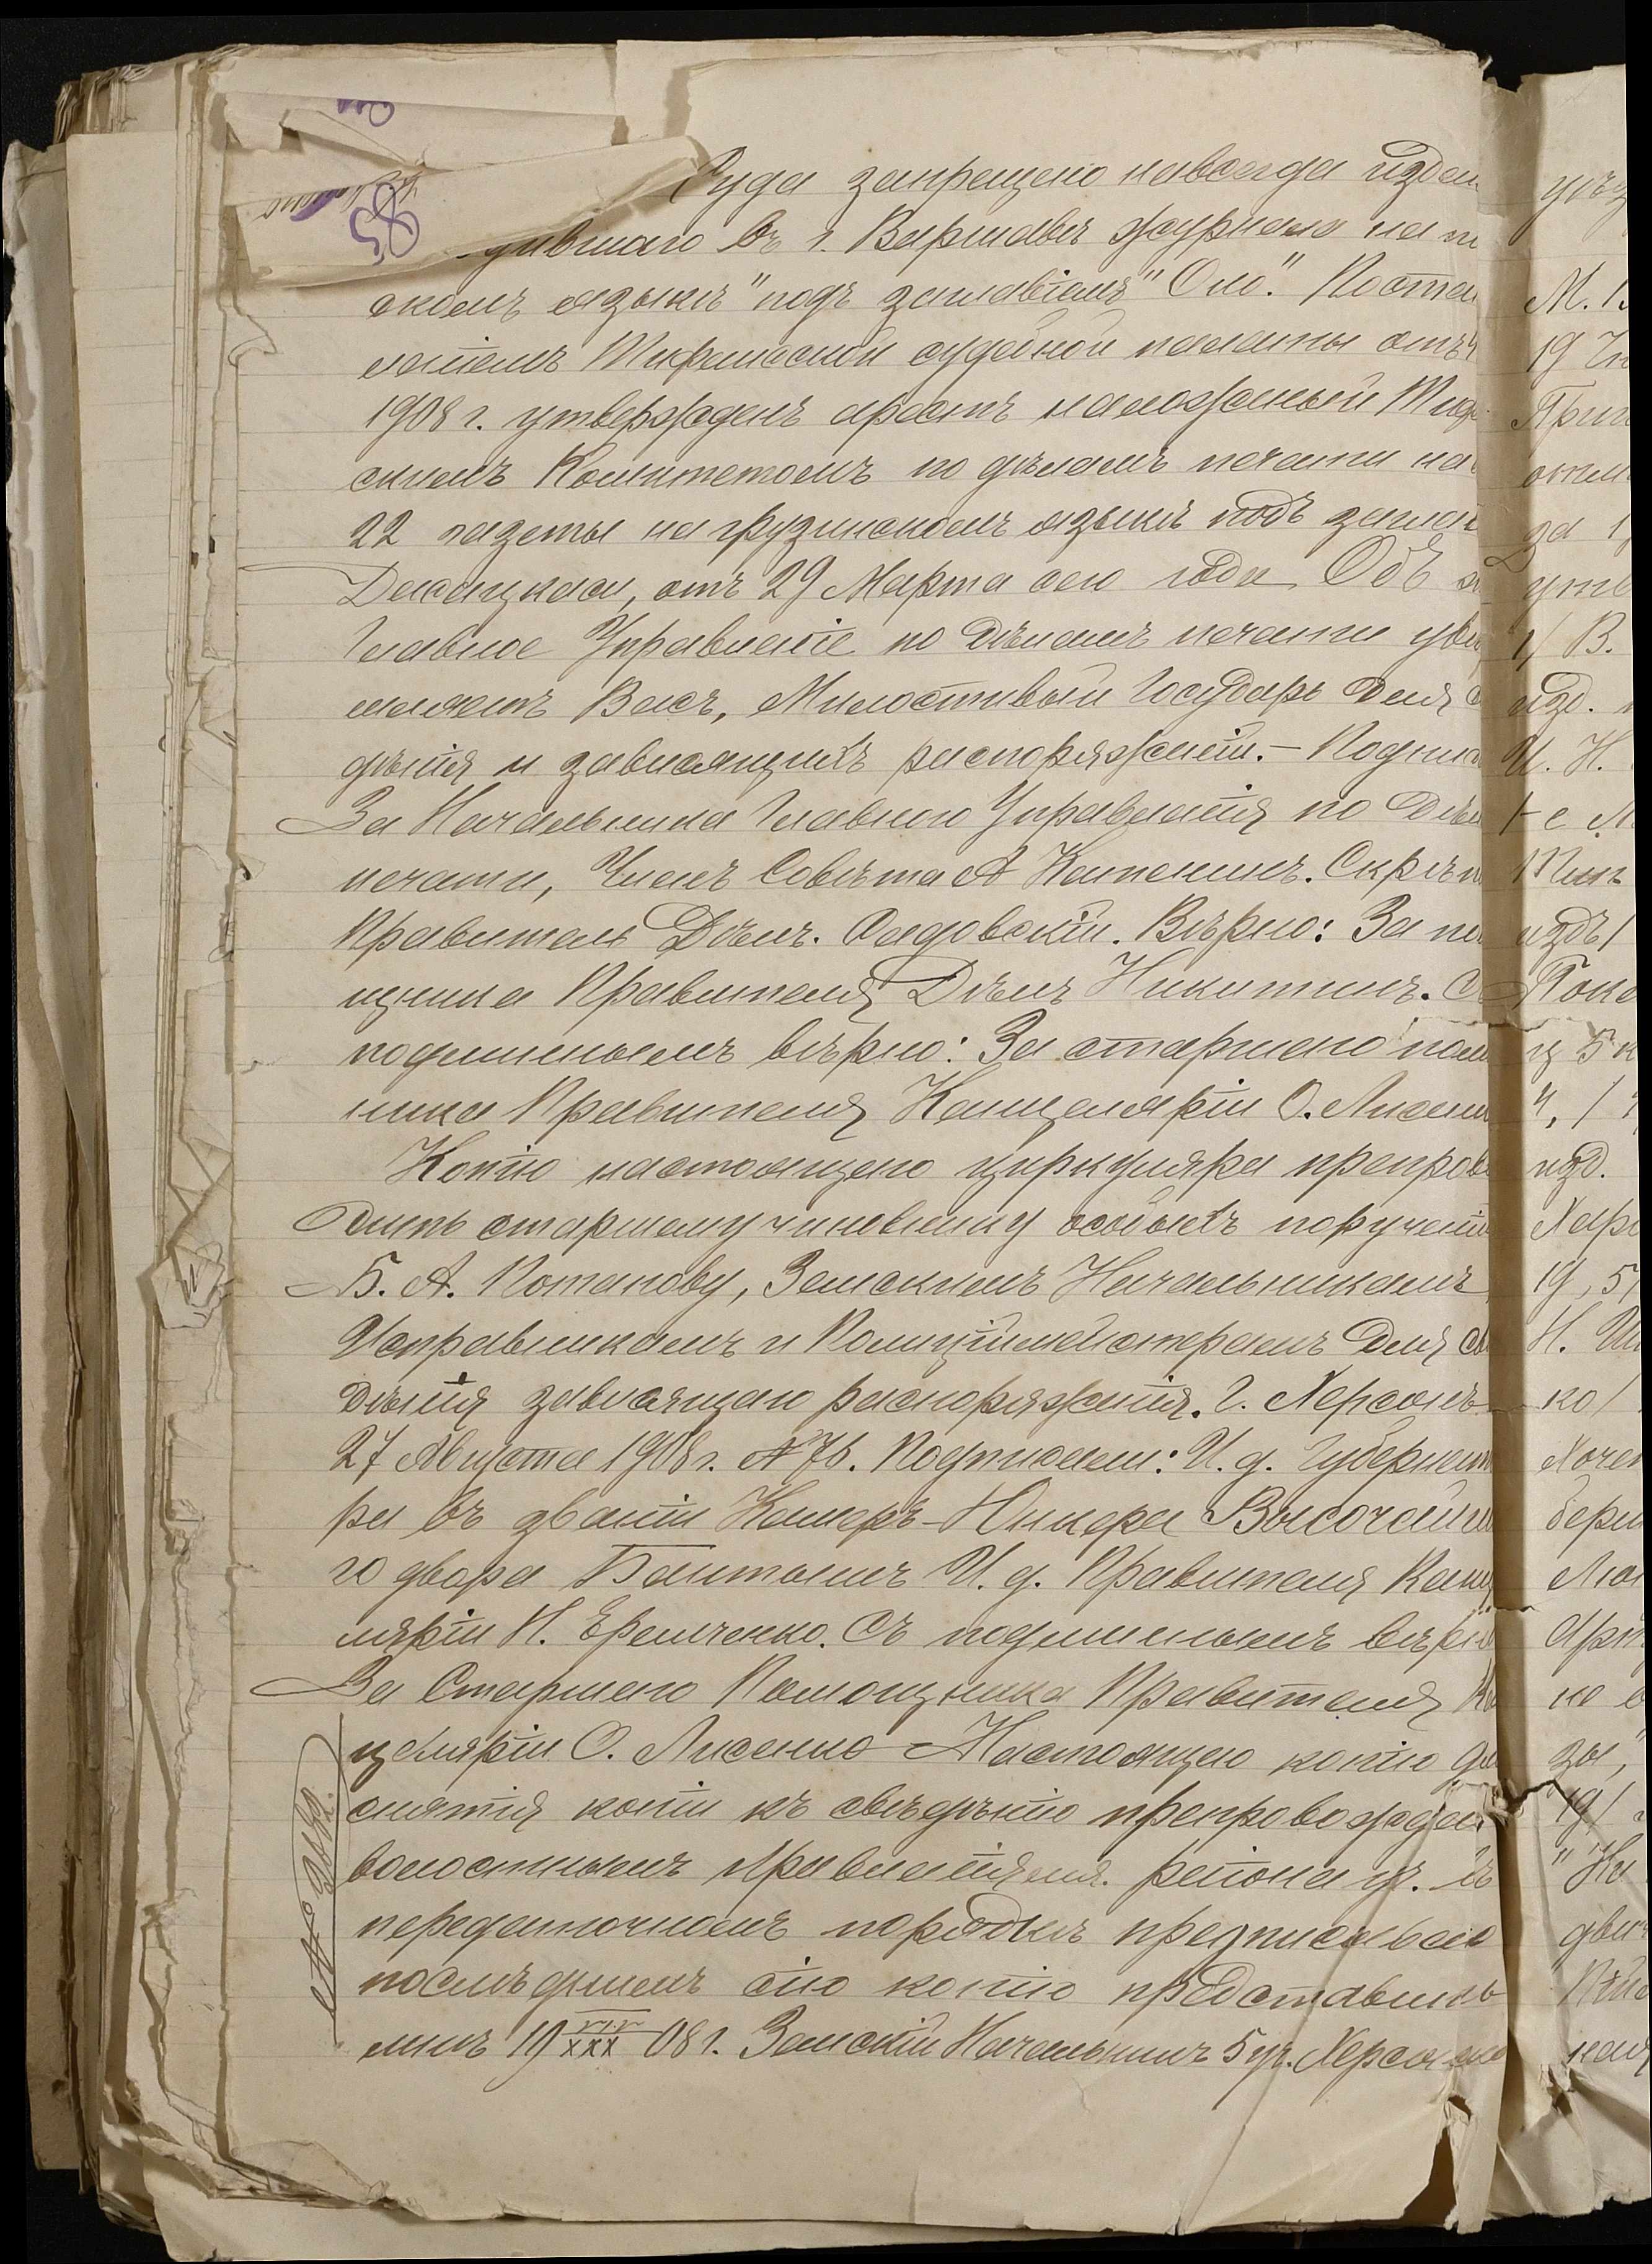 Суда запрещено навсегда изда
дившаго въ г. Варшавѣ журнала на п
скомъ языкѣ "подъ заглавіемъ" Око". Постан
леніемъ Тифлисской судебной палаты отъ
1908 г. утвержденъ арестъ наложенный Тиф-
скимъ Комитетомъ по дѣламъ печати на
22 газеты на грузинскомъ языкѣ подъ заглав
отъ 29 Марта сего года Объ
Главное Управленіе по Дѣламъ печати уве
мляетъ Васъ, Милостивый Государь для с
дѣнія и зависящихъ распоряженій. - Подпис
За Начальника Главнаго Управленія по Дѣла
печати, Членъ Совѣта А Катенинъ. Скрѣп
Правитель Дѣлъ. Садовскій. Вѣрно: За по
щника Правителя Дѣлъ Никитинъ. С
подлиннымъ вѣрно: За старшаго пом
ника Правителя Канцеляріи О. Лисен
Копію настоящаго циркуляра препров
дить старшему чиновнику особыхъ поручені
Б. А. Потапову, Земскимъ Начальникамъ
Исправникамъ и Полиціймейстерамъ для св
дѣнія зависящаго распоряженія. Г. Херсонъ
27 Августа 1908 г. № 76. Подписали: И. д. Губернат
ра въ званіи Камеръ-Юнкера Высочайша
го двора Бантышъ И. д. Правителя Канц
ляріи Н. Еремченко. Съ подлиннымъ вѣрно
За Старшаго Помощника Правителя Ка
целяріи О. Лисенко Настоящую копію для
снятія копіи къ свѣдѣнію препровождаю
волостнымъ Правленіямъ. района уч. въ
передаточномъ порядкѣ предписываю
послѣднимъ сію копію представить
мнѣ 19 VIII/XXX 08 г. Земскій Начальникъ 5 уч. Херсонско
М. 1.
19
за 1
1/ В.
изд.
И. Н.
1-е
изд.
19, 5/
Н.
ко/
19/
"На